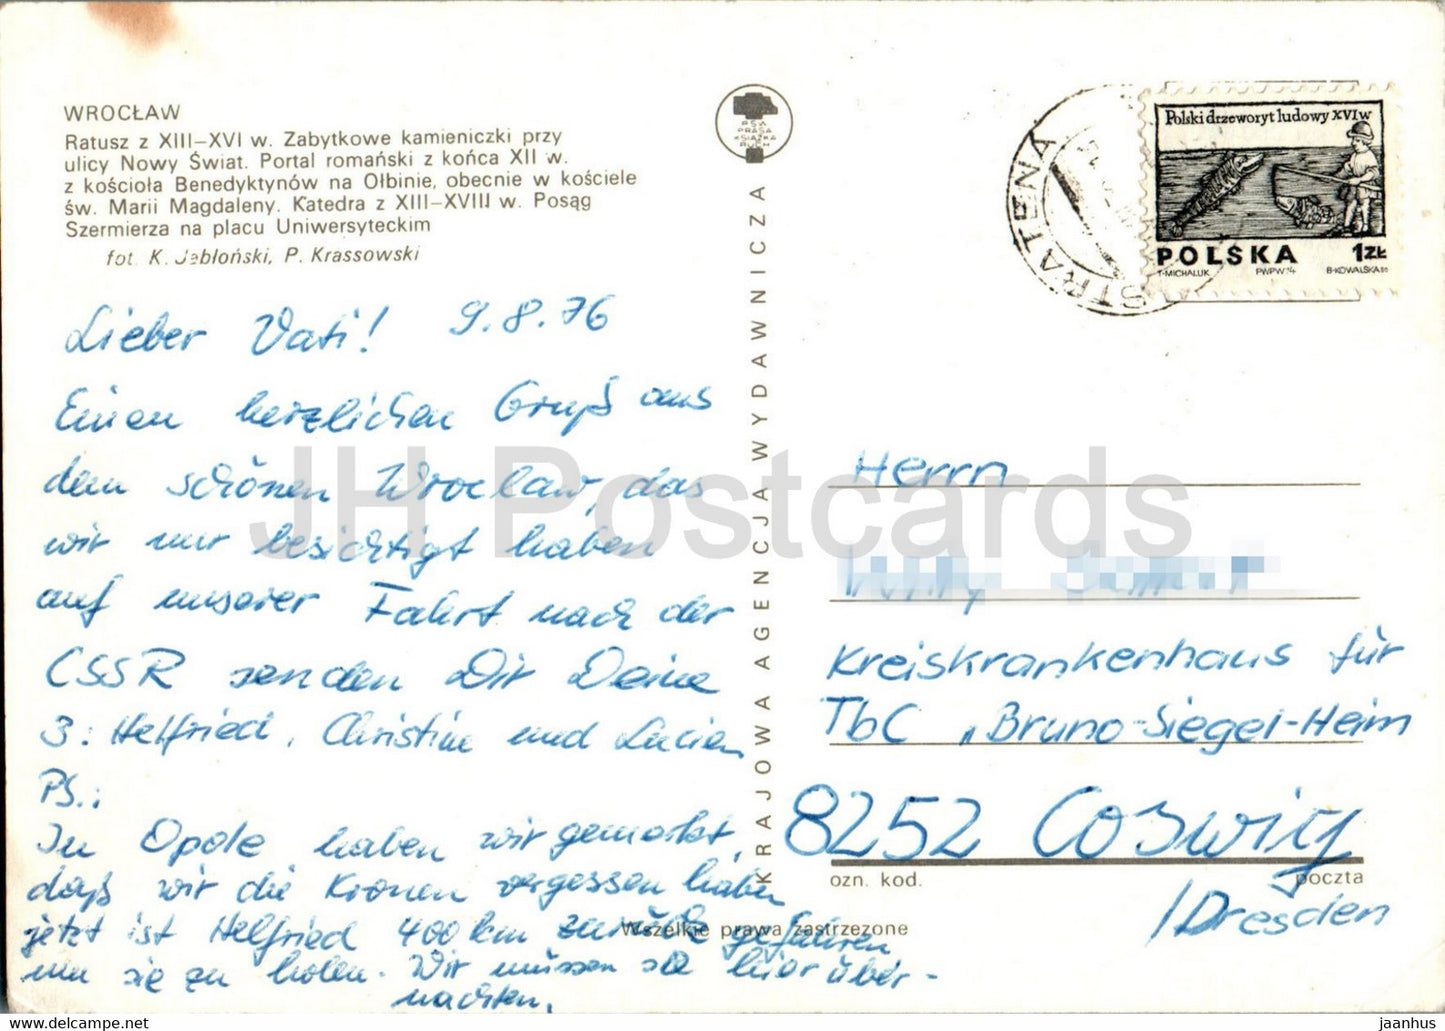 WROCŁAW
Ratusz z XIII–XVI w. Zabytkowe kamieniczki przy
ulicy Nowy Świat. Portal romański z końca XII w.
z kościoła Benedyktynów na Ołbinie, obecnie w kościele
św. Marii Magdaleny. Katedra z XIII–XVIII w. Posąg
Szermierza na placu Uniwersyteckim
fot. K. Jabłoński, P. Krassowski
Lieber Vati! 9.8.76
Einen herzlichen Gruß aus
dem schönen Wrocław, das
wir nur besichtigt haben
auf unserer Fahrt nach der
CSSR senden Dir Deine
3: Helfried, Christine und Lucien
PS.:
In Opole haben wir gemerkt,
daß wir die Kronen vergessen haben
jetzt ist Helfried 400 km zurück gefahren
um sie zu holen. Wir müssen hier über-
nachten.
PSW
PRASA
KSIĄŻKA
RUCH
KRAJOWA AGENCJA WYDAWNICZA
Wszelkie prawa zastrzezone
STRATENA
Polski drzeworyt ludowy XVI w
POLSKA 1 ZŁ
T·MICHALUK PWPW·74 B·KOWALSKA
Herrn
Kreiskrankenhaus für
TbC „Bruno-Siegel-Heim
8252 Coswig
ozn. kod. poczta
/Dresden
JH Postcards
https://www.delcampe.net
jaanhus